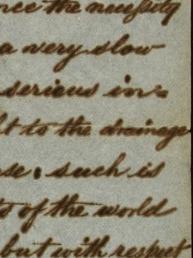 nce the necessity
a very slow
serious in=
t to the drainage
se; such is
s of the world
but with respect